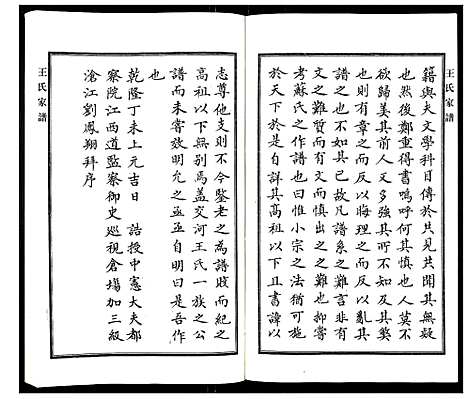 王氏家譜
籍與夫文學科目傳於共見共聞其無疑
也然後鄭重得書嗚呼何其慎也人莫不
欲歸美其前人天多強其所不知及其獎
也則有章之而反以晦理之而反以亂其
譜之也不如其已故凡譜系之難言非有
文之難質而有文而慎出之之難也抑嘗
考蘇氏之作譜也曰惟小宗之法猶可施
於天下於是自詳其高祖以下且書諱以
志尊他支則不今鑒老之為譜畋而紀之
高祖以下無別焉蓋交河王氏一族之公
譜而未嘗效明允之亟亟自明曰是吾作
也
乾隆丁未上元吉日 誥授中憲大夫都
察院江西道監察御史巡視倉場加三級
滄江劉鳳翔拜序
王氏家譜